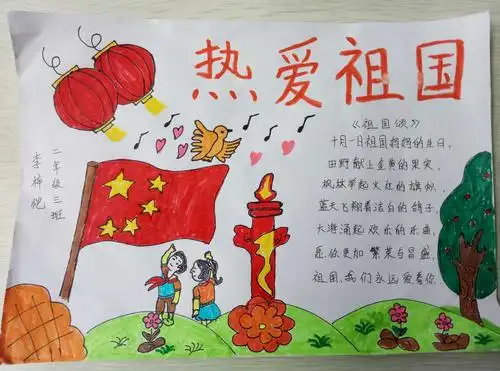 热爱祖国
《祖国颂》
十月一日祖国妈妈的生日,
田野献上金黄的果实,
枫林举起火红的旗帜,
蓝天飞翔着洁白的鸽子,
大海涌起欢乐的乐曲,
愿你更加繁荣与昌盛,
祖国,我们永远爱着你.
二年级三班
李梓